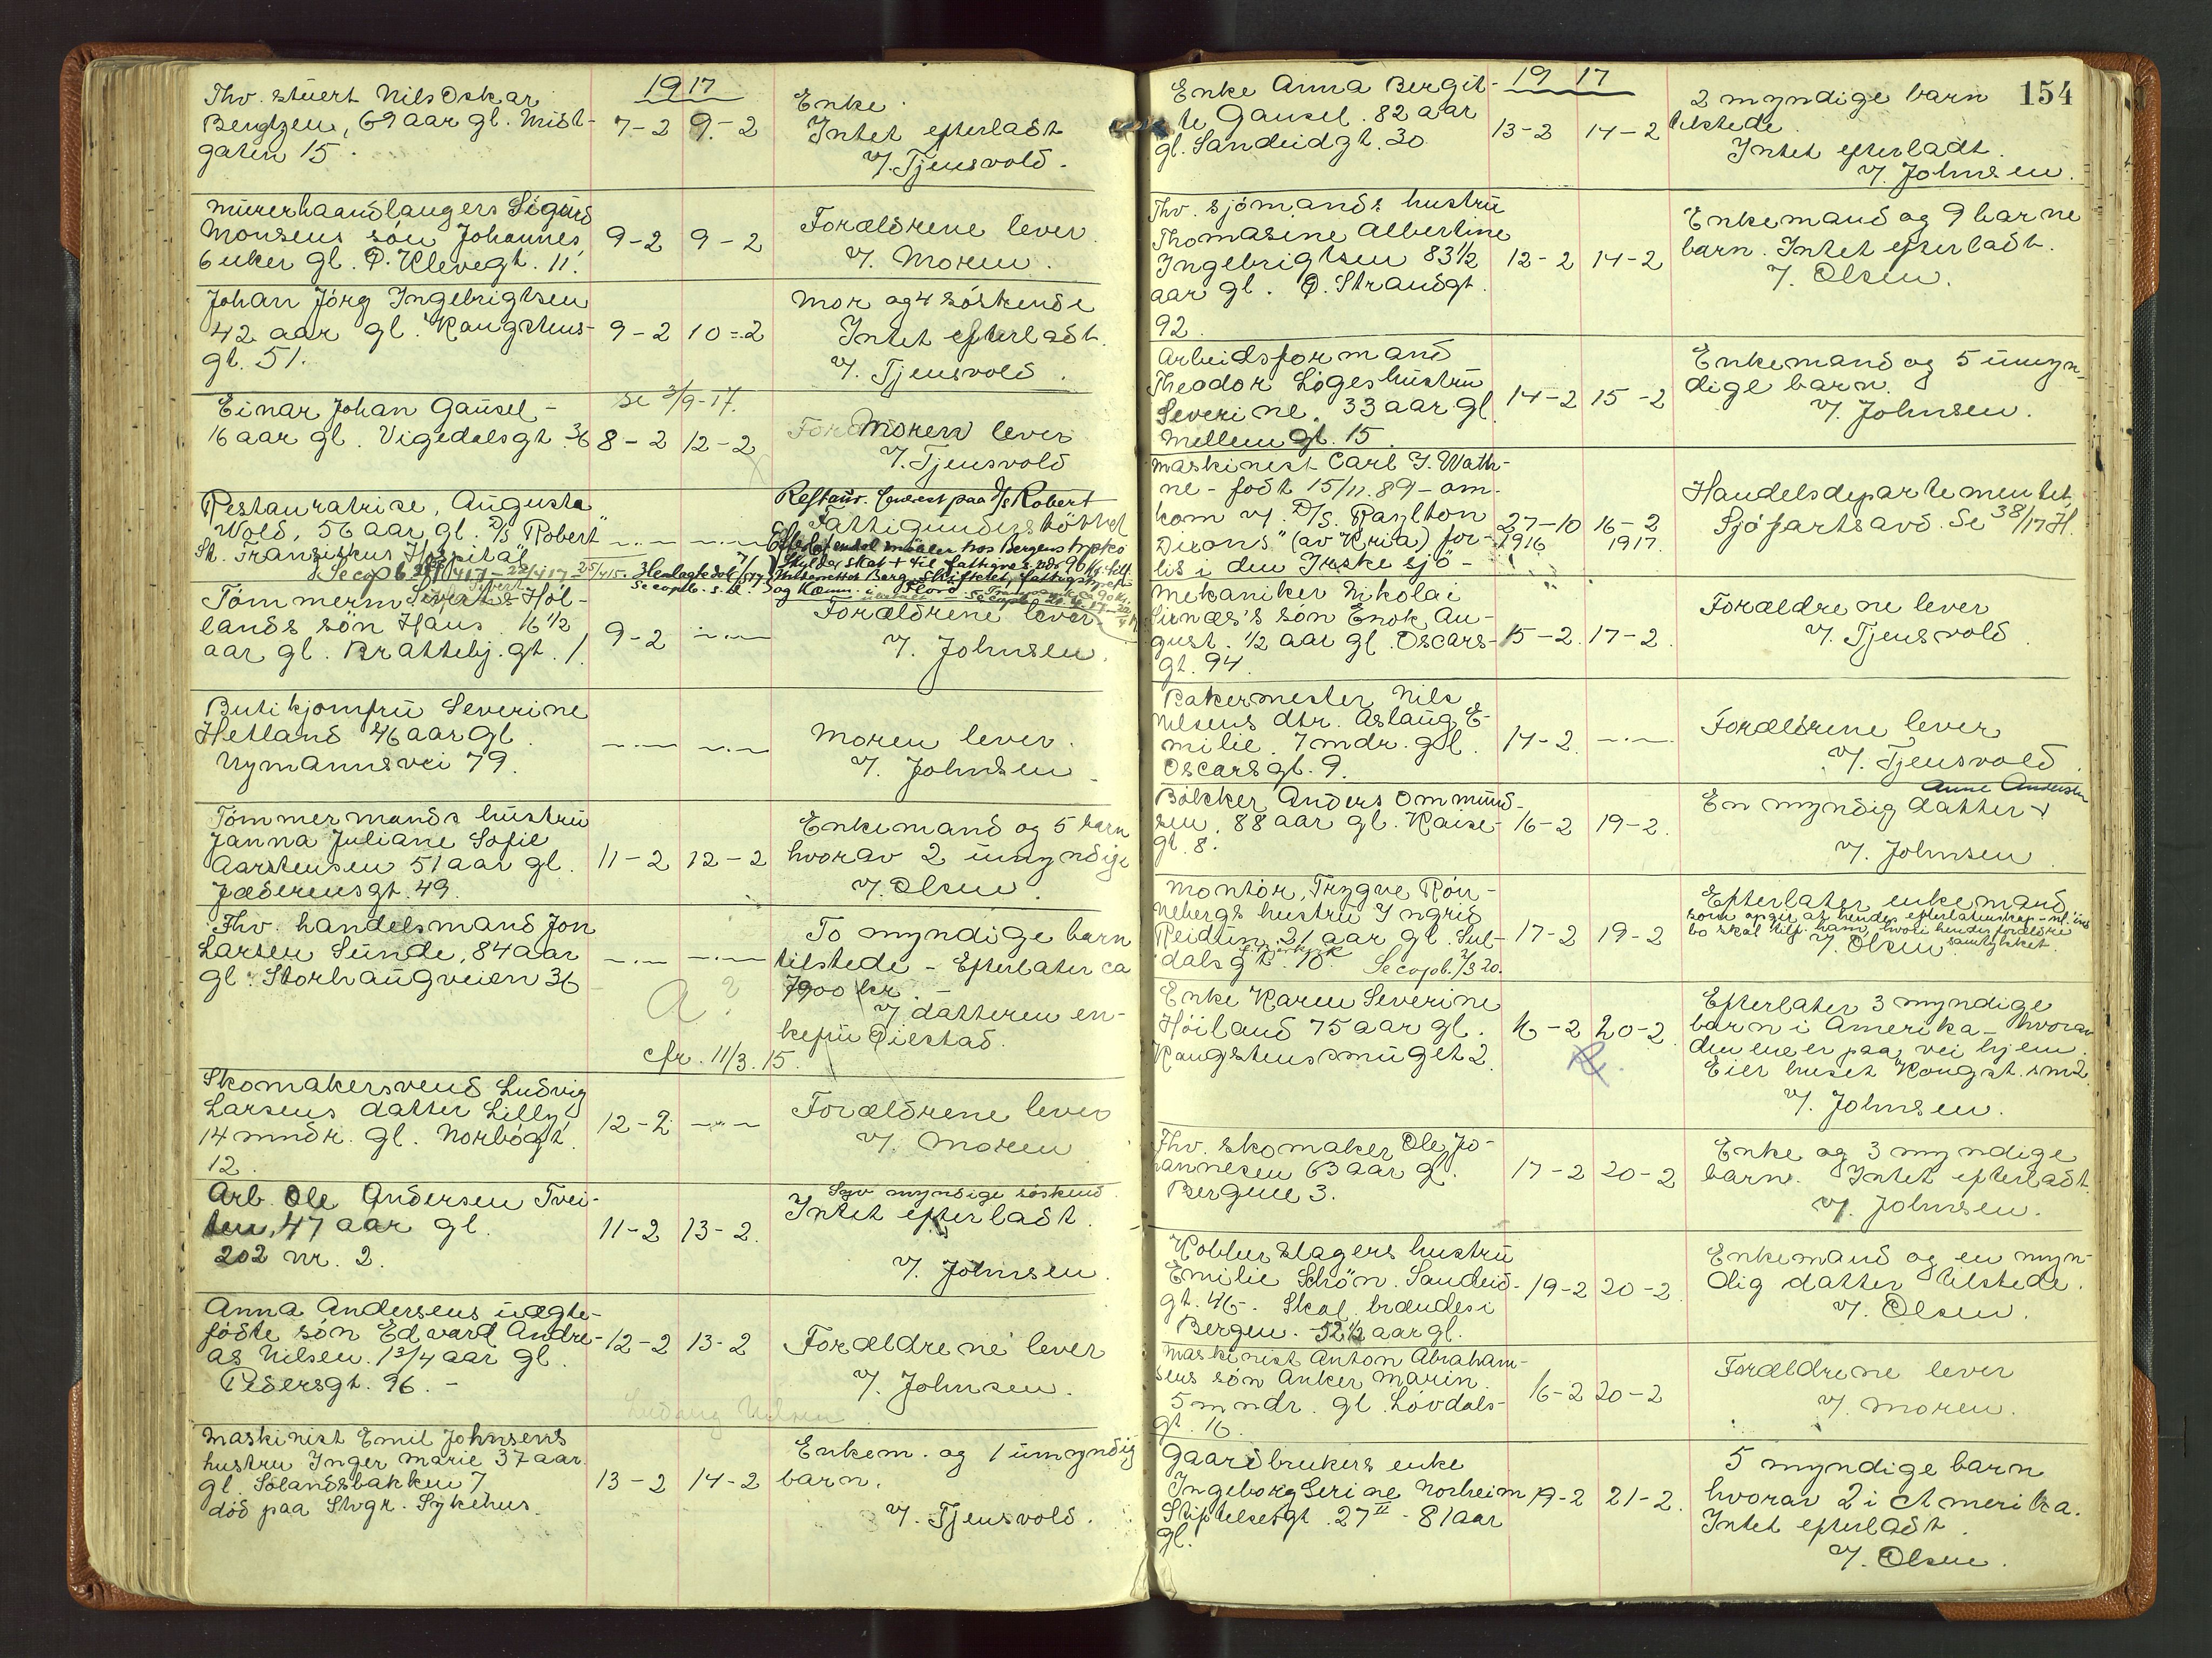 1917
Fhv. stuert Nils Oskar
Bergtzen, 69 aar gl. Mist-
gaten 15.
7-2 9-2
Enke.
Intet efterladt
v/. Tjensvold.
Murerhaandlangers Sigurd
Monsens søn Johannes
6 uker gl. Ø. Klevegt. 11.
9-2 9-2
Forældrene lever.
v/. Moren.
Johan Jørg Ingebrigtsen
42 aar gl. Kongstens-
gt. 51.
9-2 10-2
Mor og 4 søskende
Intet efterladt.
v/. Tjensvold.
Einar Johan Gausel-
16 aar gl. Vigedalsgt 36
se 3/9-17.
8-2 12-2
Moren lever
v/. Tjensvold
Restauratrise, Augusta
Wold, 56 aar gl. D/S "Robert"
St. Franziskus Hospital
-.- -.-
Restaur. paa D/S Robert
Fattigunderstøttet
Tømmerm. Siverts Høl-
lands søn Hans 16 1/2
aar gl. Brattebj. gt. 1.
9-2 -.-
Forældrene lever
v/. Johnsen.
Butikjomfru Severine
Hetland 46 aar gl.
Nymannsvei 79.
-.- -.-
Moren lever.
v/. Johnsen.
Tømmermands hustru
Janna Juliane Sofie
Aarstensen 51 aar gl.
Jæderensgt. 49.
11-2 12-2
Enkemand og 5 barn
hvorav 2 umyndige
v/. Olsen.
Fhv. handelsmand Jon
Larsen Sunde, 84 aar
gl. Storhaugveien 36
-.- -.-
a ?
cfr. 11/3.15.
To myndige barn
tilstede - Efterlater ca
7900 kr. -
v/ datteren en-
kefru Oilstad.
Skomakersvend Ludvig
Larsens datter Lilly
14 mndr. gl. Norbøgt.
12.
12-2 -.-
Forældrene lever
v/. Moren
Arb. Ole Andersen Tvei-
ten, 47 aar gl.
202 nr. 2.
11-2 13-2.
Syv myndige søskend.
Intet efterladt.
v/. Johnsen.
Anna Andersens uægte-
fødte søn Edvard Andre-
as Nilsen. 1 3/4 aar gl.
Pedersgt. 96. -
12-2 13-2
Forældrene lever
v/. Johnsen.
Ludvig Nilsen
Maskinist Emil Johnsens
hustru Inger Marie 37 aar
gl. Solandsbakken 7
død paa Stvgr. Sykehus.
13-2 14-2
Enkem. og 1 umyndig
barn.
v/. Tjensvold.
154
1917
Enke Anna Bergit-
te Gausel. 82 aar
gl. Sandeidgt. 30
13-2 14-2
2 myndige barn
tilstede.
Intet efterladt.
v/. Johnsen.
Fhv. sjømands hustru
Thomasine Albertine
Ingebrigtsen 83 1/2
aar gl. Ø. Strandgt.
92.
12-2 14-2
Enkemand og 9 barne
barn. Intet efterladt.
v/. Olsen.
Arbeidsformand
Theodor Løges hustru
Severine. 33 aar gl.
Mellemgt. 15.
14-2 15-2
Enkemand og 5 umyn-
dige barn.
v/. Johnsen.
Maskinest Carl J. Wath-
ne - født 15/11.89 - om-
kom v/. D/S. "Raylton
Dixons" (av Kria) for-
lis i den Irske sjø -
27-10 16-2
1916 1917.
Handelsdepartementet,
Sjøfartsavd. Se 38/17 H.
Mekaniker Nikolai
Sirnæs's søn Enok Au-
gust. 1/2 aar gl. Oscars-
gt. 94.
15-2. 17-2.
Forældrene lever
v/. Tjensvold
Bakermester Nils
Nilsens dtr. Aslaug E-
milie. 7 mdr. gl.
Oscarsgt. 9.
14-2. -.-
Forældrene lever
v/. Tjensvold.
Bøkker Anders Ommund-
sen, 88 aar gl. Kaise-
gt. 8.
16-2 19-2.
Anne Andersen
En myndig datter
v/. Johnsen.
Montør, Trygve Røn-
nebergs hustru Ingrid
Reidun, 21 aar gl. Sul-
dalsgt. 10.
17-2 19-2
Efterlater enkemand
som opgir at hendes efterlatenskap
bo skal tilf. ham, hvori hendes forældre
samtykket.
v/. Olsen
Enke Karen Severine
Høiland 75 aar gl.
Kongstenssmuget 2.
16-2 20-2.
Efterlater 3 myndige
barn i Amerika - hvorav
den ene er paa vei hjem.
Eier huset Kongst. sm 2.
v/. Johnsen.
Fhv. skomaker Ole Jo-
hannesen 63 aar gl.
Bergene 3.
17-2 20-2
Enke og 3 myndige
barn. Intet efterladt.
v/. Johnsen.
Kobberslagers hustru
Emilie Schøn. Sandeid-
gt. 46-. Skal brændes i
Bergen. 52 1/2 aar gl.
19-2 20-2.
Enkemand og en myn-
dig datter tilstede.
v/. Olsen.
Maskinist Anton Abraham-
sens søn Anker Marin.
5 mndr. gl. Løvdals-
gt. 16.
16-2 20-2
Forældrene lever
v/. Moren.
Gaardbrukers enke
Ingeborg Serine Norheim
Stiftelsesgt. 27 II - 81 aar
gl.
19-2 21-2.
5 myndige barn
hvorav 2 i Amerika.
Intet efterladt.
v/. Olsen.